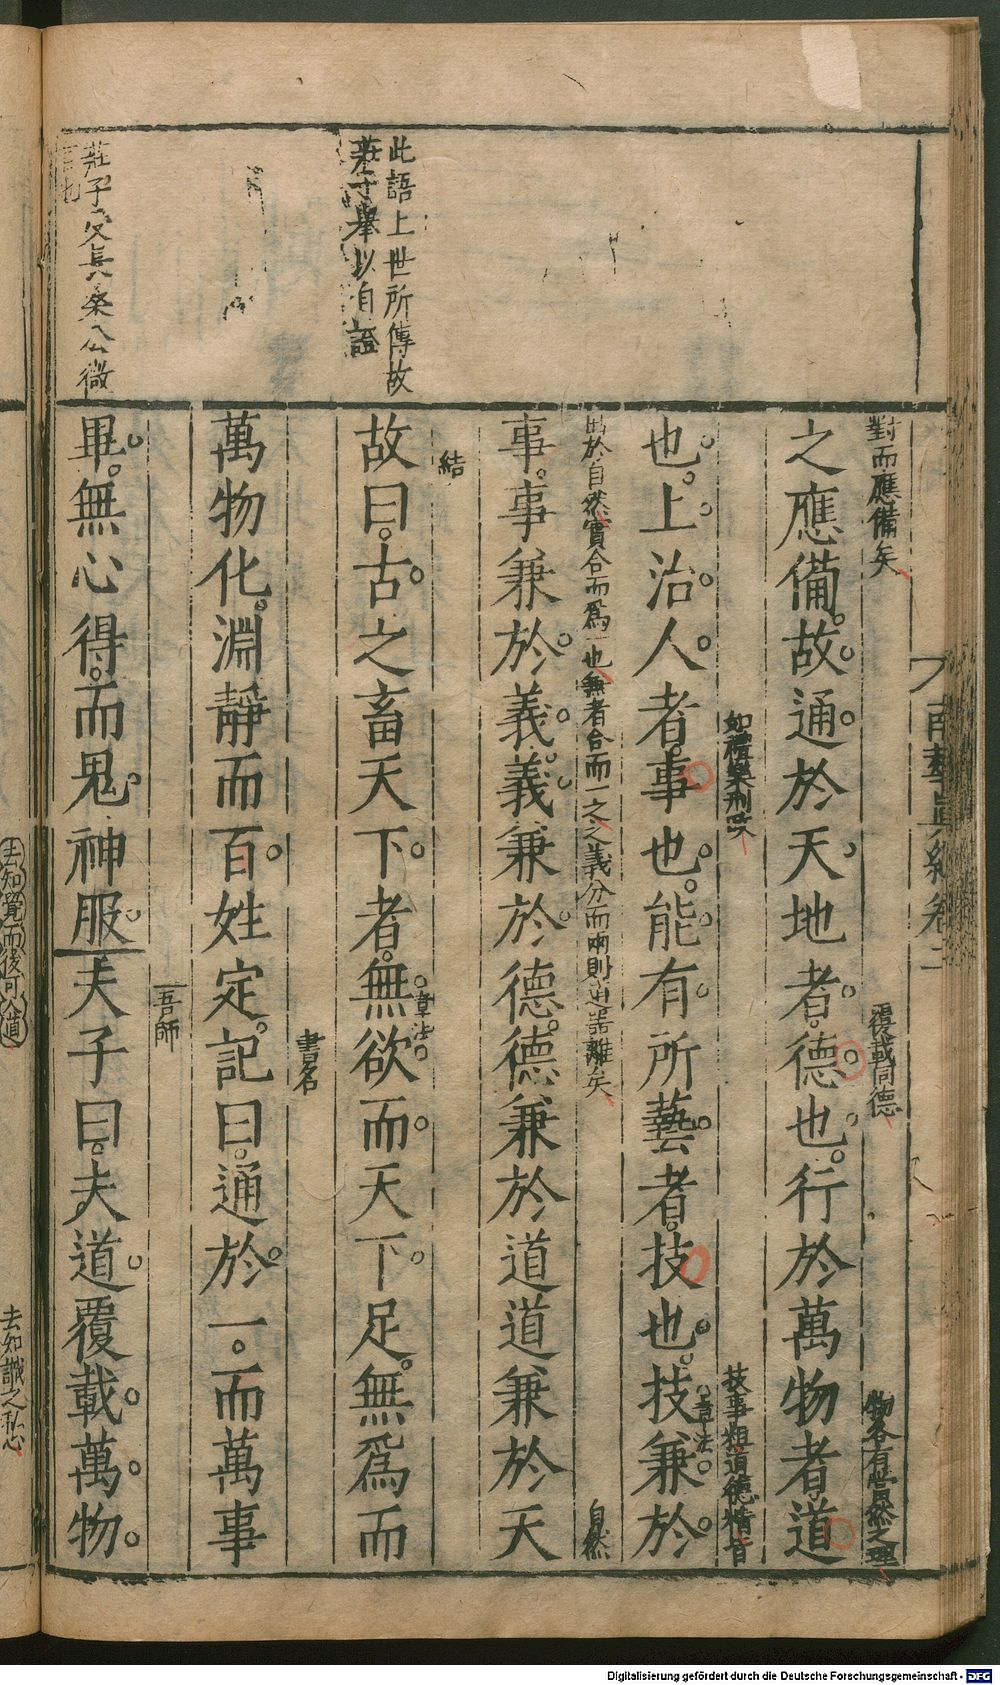 此語上世所傳故
莊子舉以自證
對而應備矣
覆載同德
物各有當然之理
之應備。故通於天地者。德也。行於萬物者。道
如禮樂刑政
技事粗道德精皆
也。上治人者。事也。能有所藝者。技也。技兼於
章法
出於自然實合而爲一也無者合而一之之義分而兩則道器離矣
自然
事。事兼於義。義兼於德。德兼於道道兼於天
結
章法
故曰。古之畜天下者。無欲而天下足。無爲而
書名
萬物化。淵靜而百姓定。記曰。通於一。而萬事
吾師
畢。無心得。而鬼神服夫子曰。夫道覆載萬物
去知覺而後可入道
去知識之私心
Digitalisierung gefördert durch die Deutsche Forschungsgemeinschaft - DFG